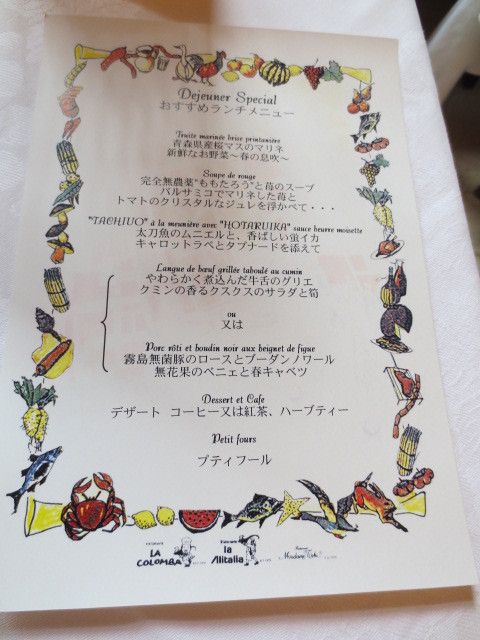 Dejeuner Special
おすすめランチメニュー
Truite marinée brise printanière
青森県産桜マスのマリネ
新鮮なお野菜～春の息吹～
Soupe de rouge
完全無農薬"ももたろう"と苺のスープ
バルサミコでマリネした苺と
トマトのクリスタルなジュレを浮かべて・・・
"TACHIUO" à la meunière avec "HOTARUIKA" sauce beurre noisette
太刀魚のムニエルと、香ばしい蛍イカ
キャロットラペとタプナードを添えて
Langue de bœuf grillée taboulé au cumin
やわらかく煮込んだ牛舌のグリエ
クミンの香るクスクスのサラダと筍
ou
又は
Porc rôti et boudin noir aux beignet de figue
霧島無菌豚のロースとブーダンノワール
無花果のベニェと春キャベツ
Dessert et Cafe
デザート コーヒー又は紅茶、ハーブティー
Petit fours
プティフール
LA COLOMBA
la Alitalia